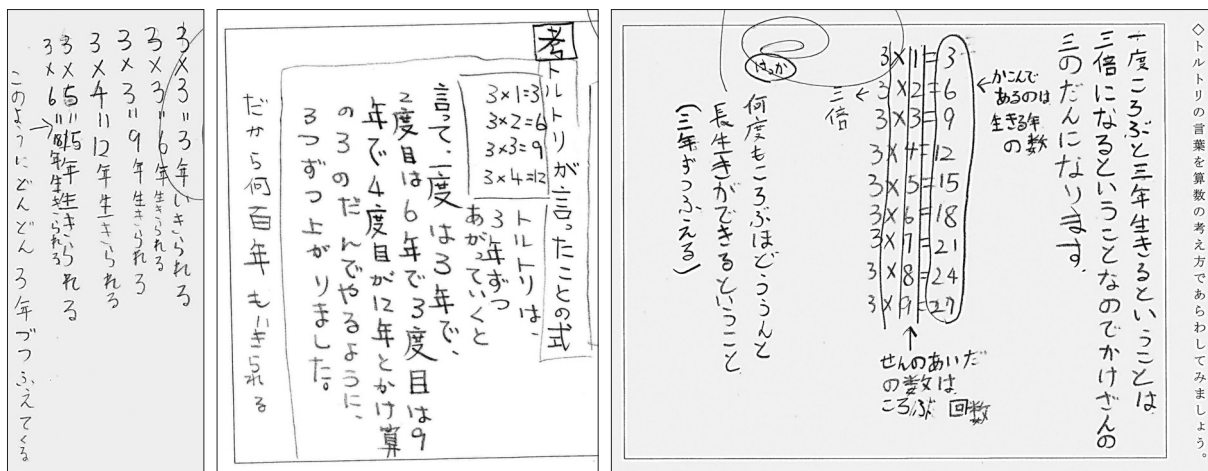 ◇トルトリの言葉を算数の考え方であらわしてみましょう。
一度ころぶと三年生きるということは
三倍になるということなのでかけざんの
三のだんになります。
←かこんで
あるのは
生きる年
の数
3×1=3
3×2=6
3×3=9
3×4=12
3×5=15
3×6=18
3×7=21
3×8=24
3×9=27
↑
せんのあいだ
の数は
ころぶ回数
三倍
はっか
何度もころぶほどううんと
長生きができるということ
(三年ずつふえる)
考
トルトリが言ったことの式
3×1=3
3×2=6
3×3=9
3×4=12
トルトリは、
3年ずつ
あがっていくと
言って、一度は3年で、
2度目は6年で3度目は9
年で4度目が12年とかけ算
の3のだんでやるように、
3つずつ上がりました。
だから何百年もいきられる
3×3=3年いきられる
3×3=6年生きられる
3×3=9年生きられる
3×4=12年生きられる
3×5=15年生きられる
3×6=18年生きられる
このようにどんどん3年づつふえてくる